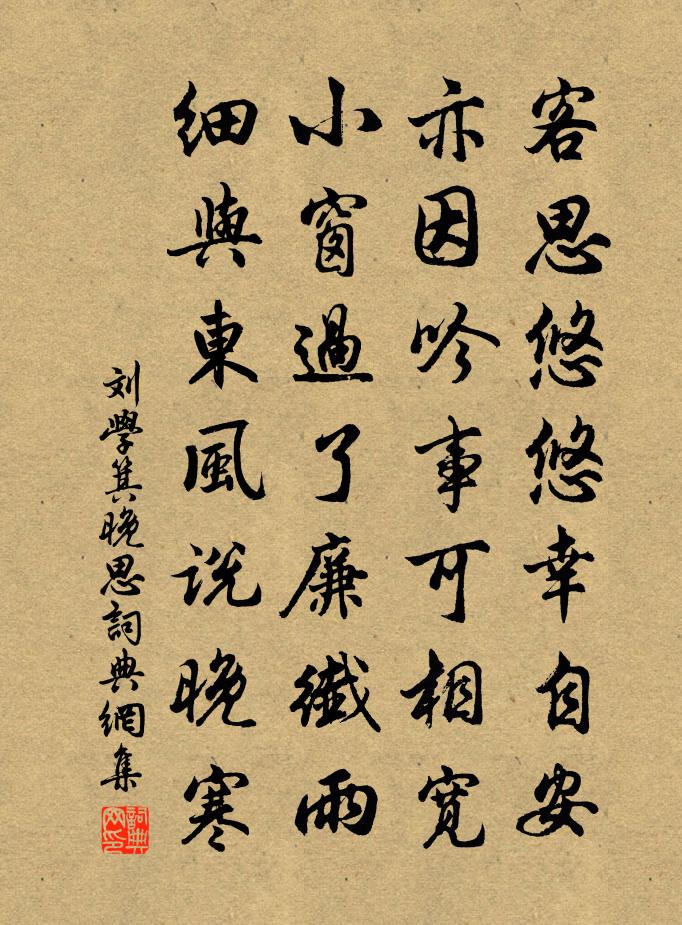 客思悠悠幸自安
亦因吟事可相寬
小窗過了廉纖雨
細與東風説晚寒
刘學箕晚思詞典網集
詞典網印